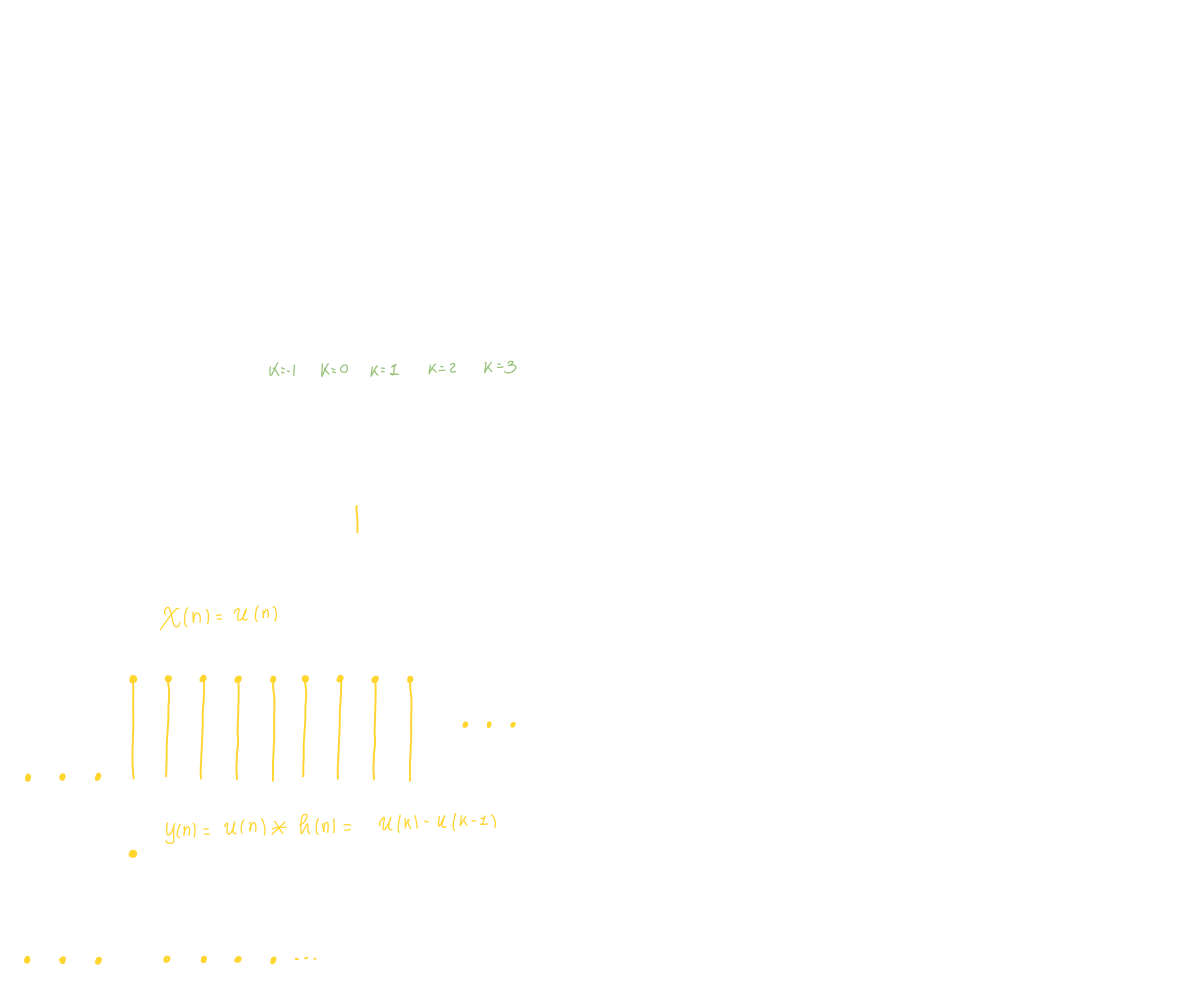 K=-1 K=0 K=1 K=2 K=3
X(n) = u(n)
y(n) = u(n) * h(n) = u(k) - u(k-1)